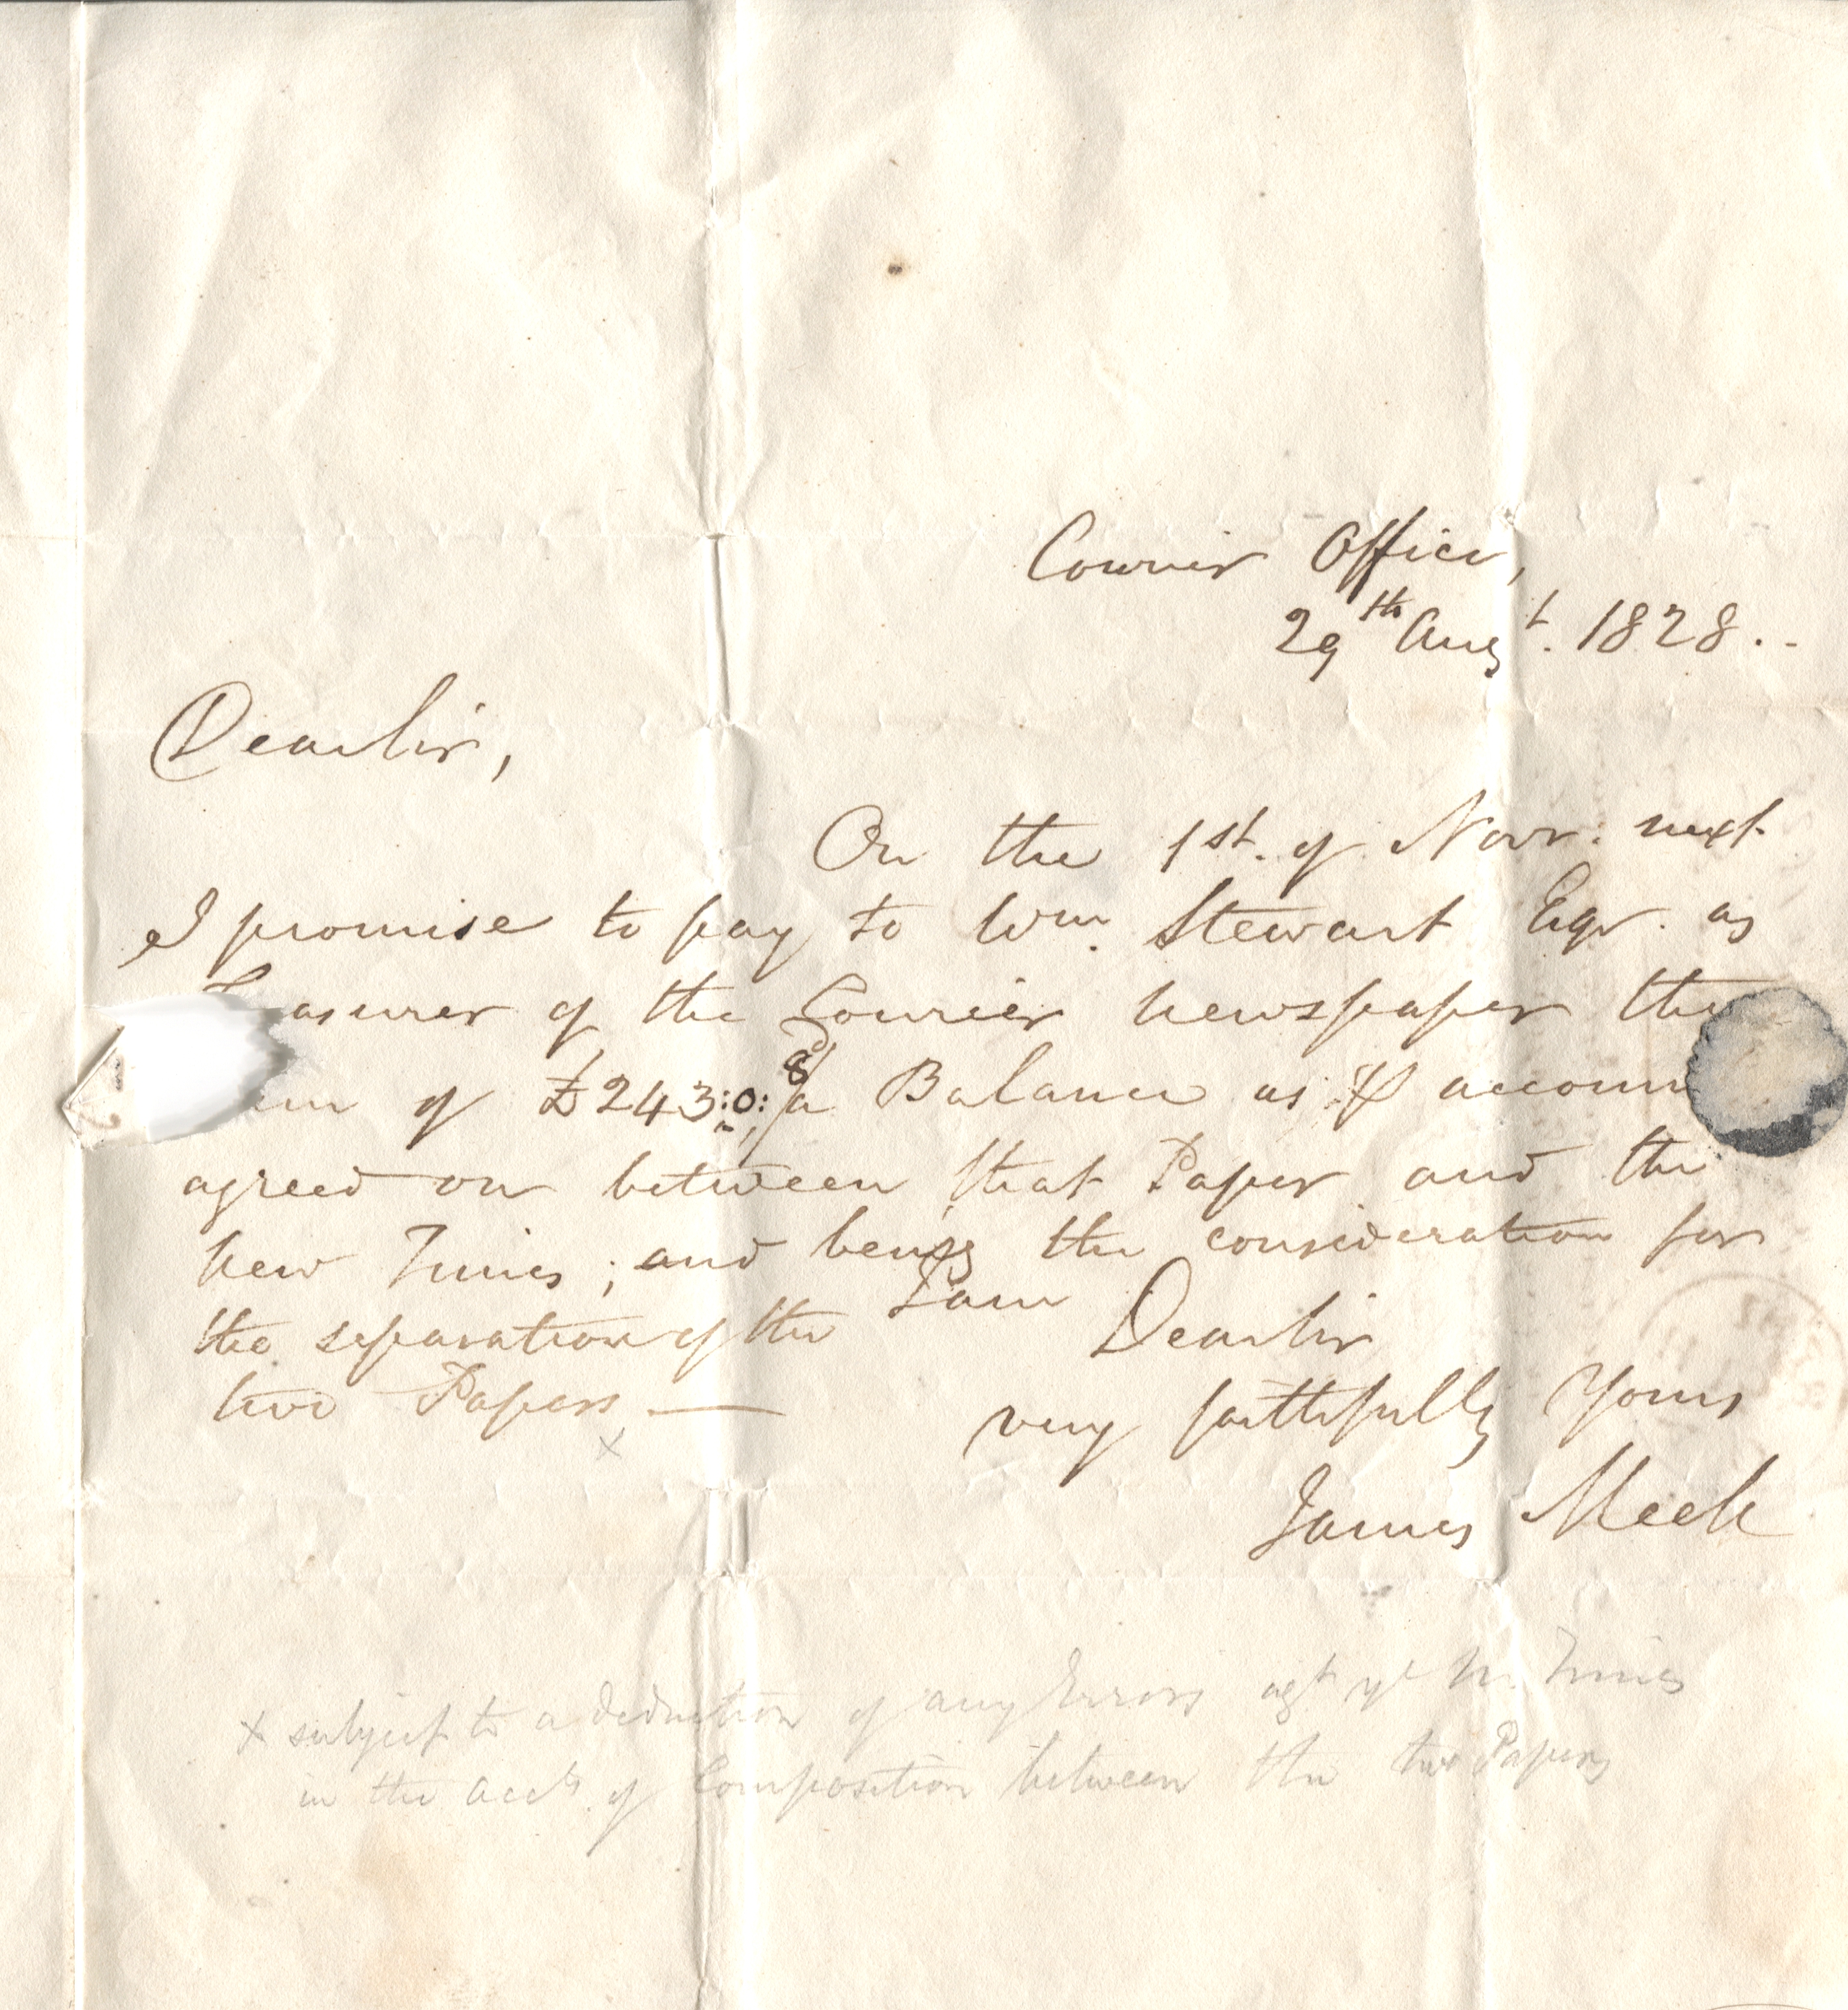 Courier Office,
29th Augt. 1828.
Dear Sir,
On the 1st. of Novr. next
I promise to pay to Wm. Stewart Eqr. as
asurer of the Courier newspaper the
of £243:0:8d/ a Balance as ⅌ accoun
agreed on between that Paper and the
new Times; and being the consideration for
the separation of the
two Papers —
x
I am
Dear Sir
very faithfully Yours
James Meek
x subject to a deduction of any Errors agt ye N. Times
in the accts. of Composition between the two Papers